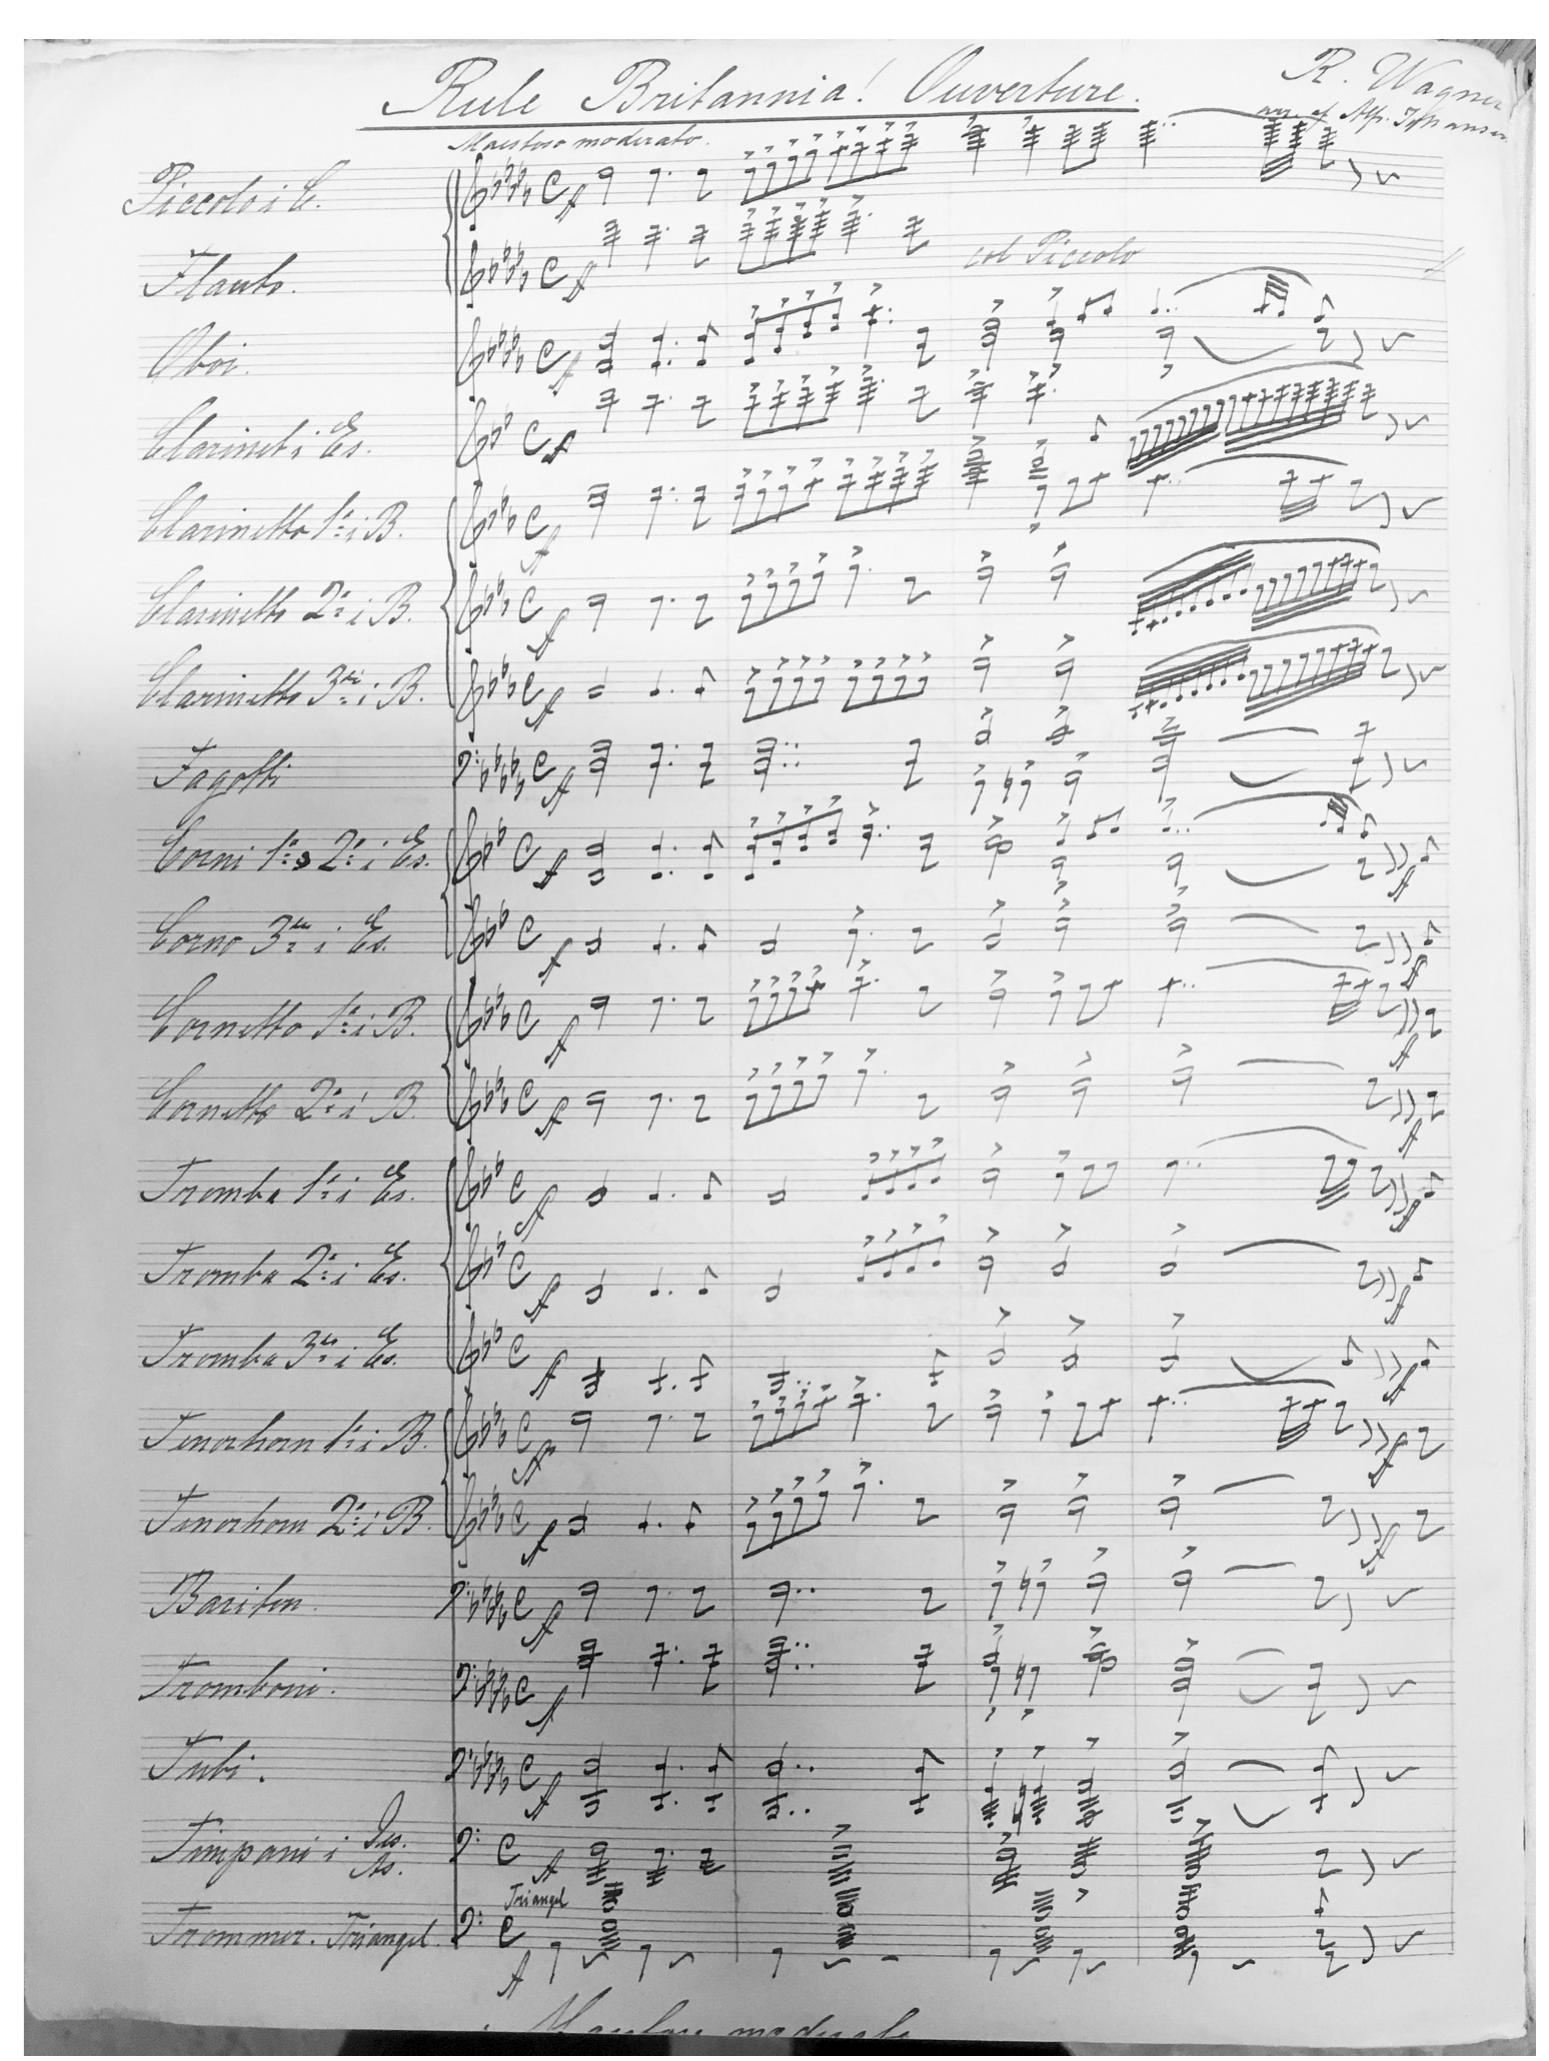 Rule Britannia! Ouverture.
R. Wagner
arr. af Alfr.
Maestoso moderato.
Piccolo i C.
Flauto.
col Piccolo
Oboi.
Clarinet i Es.
Clarinetto 1º i B.
Clarinetto 2º i B.
Clarinetto 3º i B.
Fagotti
Corni 1º & 2º i Es.
Corno 3º i Es.
Cornetto 1º i B.
Cornetto 2º i B.
Tromba 1º i Es.
Tromba 2º i Es.
Tromba 3º i Es.
Tenorhorn 1º i B.
Tenorhorn 2º i B.
Bariton.
Tromboni.
Tubi.
Timpani i Des. As.
Triangel
Trommer. Triangel.
Maestoso moderato